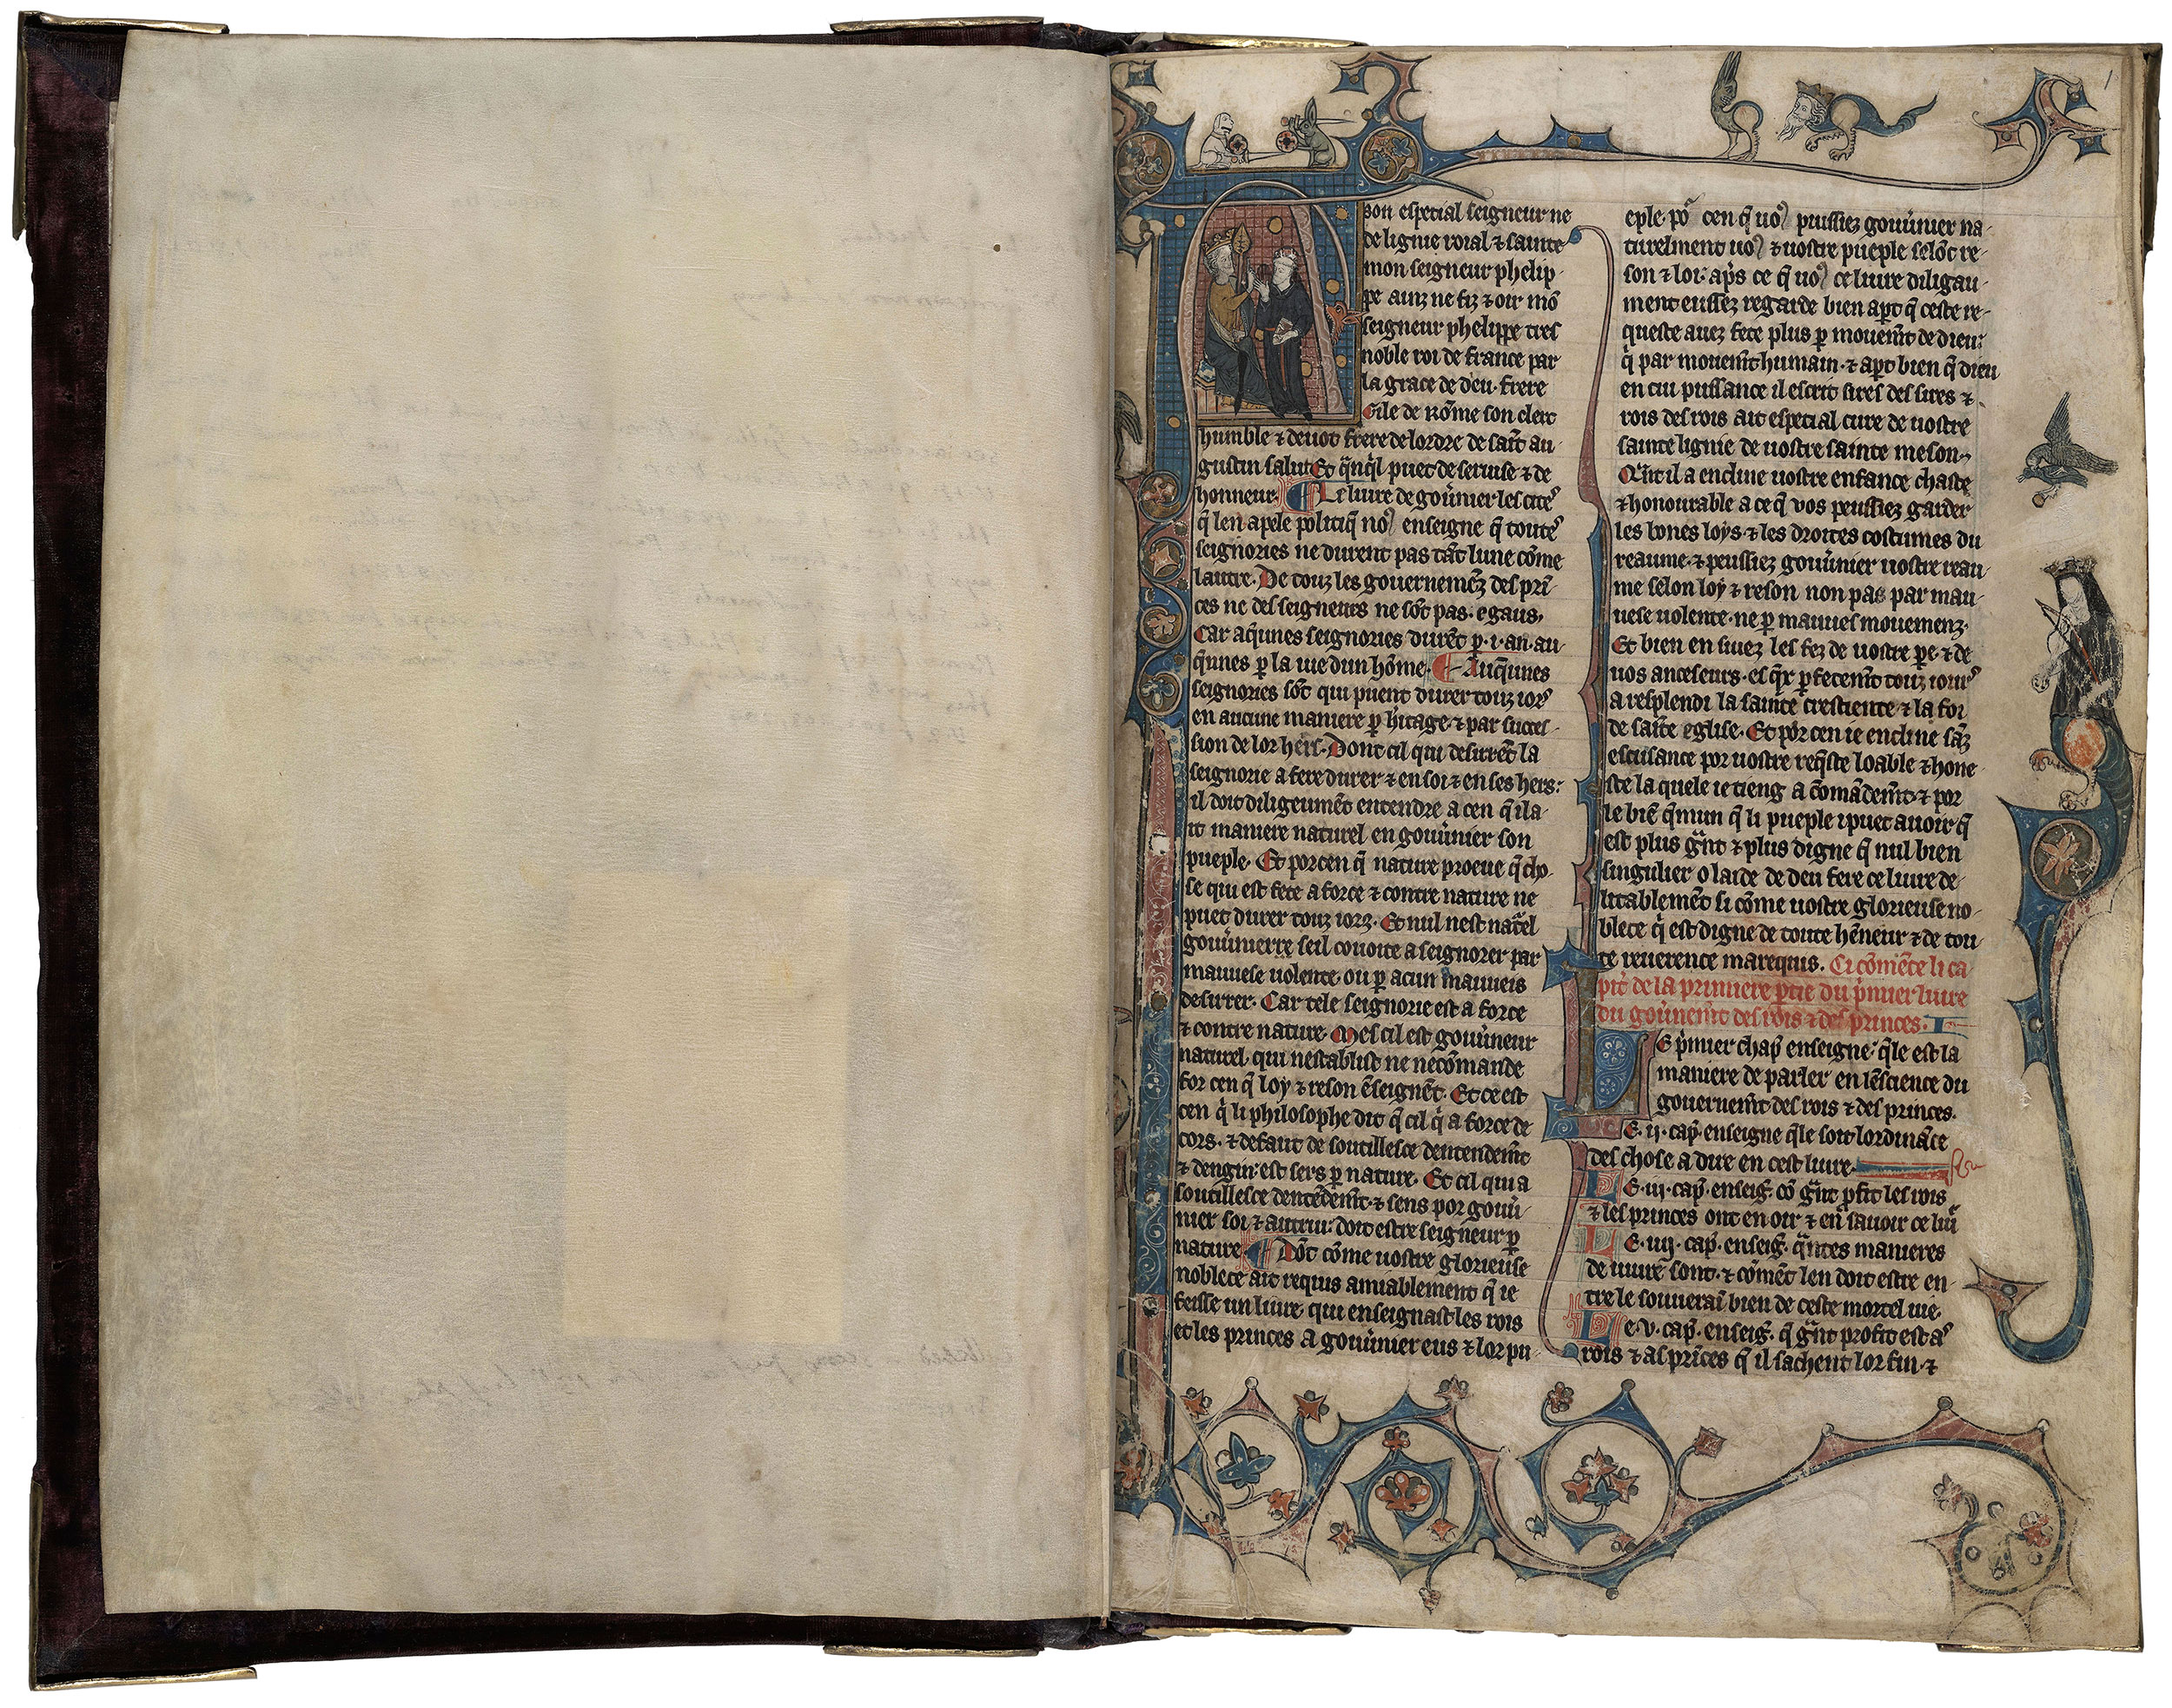 1
A son especial seigneur ne
de lignie roial ⁊ sainte
mon seigneur phelip-
pe ainz ne fiz ⁊ oir mō
seigneur phelippe tres
noble roi de france par
la grace de deu. frere
Gile de Rōme son clerc
humble ⁊ devot frere de lordre de saīt au-
gustin salut Et q̄nq̄l puet de servise ⁊ de
honneur. ¶ Le livre de gov̄nier les citeˀ
q̄ len apele politiq̄ noˀ enseigne q̄ touteˀ
seignories ne durent pas tāt lune cōme
lautre. De touz les gouvernemēz des prī-
ces ne des seigneurs ne sōt pas. egaus,
Car aq̄unes seignories durēt p̲ .i. an. au-
q̄unes p̲ la vie dun hōme. ¶ Auq̄unes
seignories sōt qui puent durer touz iorˀ
en aucune maniere p̲ h̄itage. ⁊ par succes-
sion de lor hers. Dont cil qui desirrēt la
seignorie a fere durer ⁊ en soi ⁊ en ses hers:
il doit diligeumēt entendre a cen q̄ il a-
it maniere naturel en gouv̄nier son
pueple. Et porcen q̄ nature proeve q̄ cho-
se qui est fete a force ⁊ contre nature ne
puet durer touz iorz. Et nul nest nat̾el
gouv̄nierre seil covoite a seignorer par
mauvese volente. ou p̲ acun mauveis
desirrer. Car tele seignorie est a force
⁊ contre nature. Mes cil est gouv̄neur
naturel. qui nestablist ne necōmande
for cen q̄ loy ⁊ reson ēseignēt. Et ce est
cen q̄ li philosophe dit q̄ cil q̄ a force de
cors. ⁊ defaut de soutillesce dentendem̄t
⁊ dengin: est sers p̲ nature. Et cil qui a
soutillesce dentēdem̄t. ⁊ sens por gouv̄-
nier soi ⁊ autrui: doit estre seigneur p̲
nature. ¶ Dōt cōme vostre glorieuse
noblece ait requis amiablement q̄ ie
feisse un livre qui enseignast les rois
et les princes a gouv̄nier eus ⁊ lor pu-
eple. po̾ cen q̄ voˀ puissiez gouv̄nier na-
turelment voˀ ⁊ vostre pueple selōc re-
son ⁊ loi: ap̄s ce q̄ voˀ ce livre diligau-
ment eussiez regarde bien ap̲t q̄ ceste re-
queste avez fete plus p̲ movem̄t de dieu:
q̄ par movem̄t humain. ⁊ ap̲t bien q̄ dieu
en cui puissance il escrit sires des sires ⁊
rois des rois ait especial cure de vostre
sainte lignie de vostre sainte meson.
Q̄nt il a encline vostre enfance chaste
⁊ honourable a ce q̄ vos peussiez garder
les bones loys. ⁊ les droites costumes du
reaume. ⁊ peussiez gouv̄nier vostre reau-
me selon loy ⁊ reson non pas par mau-
vese volente. ne p̲ mauves movemenz.
Et bien en sivez les fez de vostre p̲e. ⁊ de
vos anceseurs. es q̄x p̲fetem̄t touz iourˀ
a resplendi la sainte crestiente ⁊ la foi
de saīte eglise. Et po̾ cen ie encline sāz
escusance por vostre req̄ste loable ⁊ hone-
ste la quele ie tieng a cōmādem̄t. ⁊ por
le biē q̄mun q̄ li pueple i puet avoir q̄
est plus g̾nt ⁊ plus digne q̄ nul bien
singulier o laide de deu fere ce livre de-
litablemēt si cōme vostre glorieuse no-
blece q̄ est digne de toute hēneur ⁊ de tou-
te reverence ma requis. Ci cōmēce li ca
pit̄ de la primiere p̲tie du p̄mier livre
du gov̄nem̄t des rois ⁊ des princes.
Le p̄mier chap̄ enseigne: q̄le est la
maniere de parler en lēscience du
gouvernem̄t des rois ⁊ des princes.
Le .ij. cap̄. enseigne q̄le soit lordināce
des chose a dire en cest livre.
Le .iij. cap̄. enseig̅. cō g̾nt p̲fit les rois
⁊ les princes ont en oir ⁊ en savoir ce liv̄
Le .iiij. cap̄. enseig̅. q̾ntes manieres
de vivre sont. ⁊ cōmēt len doit estre en-
tre le souveraī bien de ceste mortel vie.
Le .v. cap̄. enseig̅. q̄ g̾nt profit est aˀ
rois ⁊ as prīces q̄ il sachent lor fin. ⁊